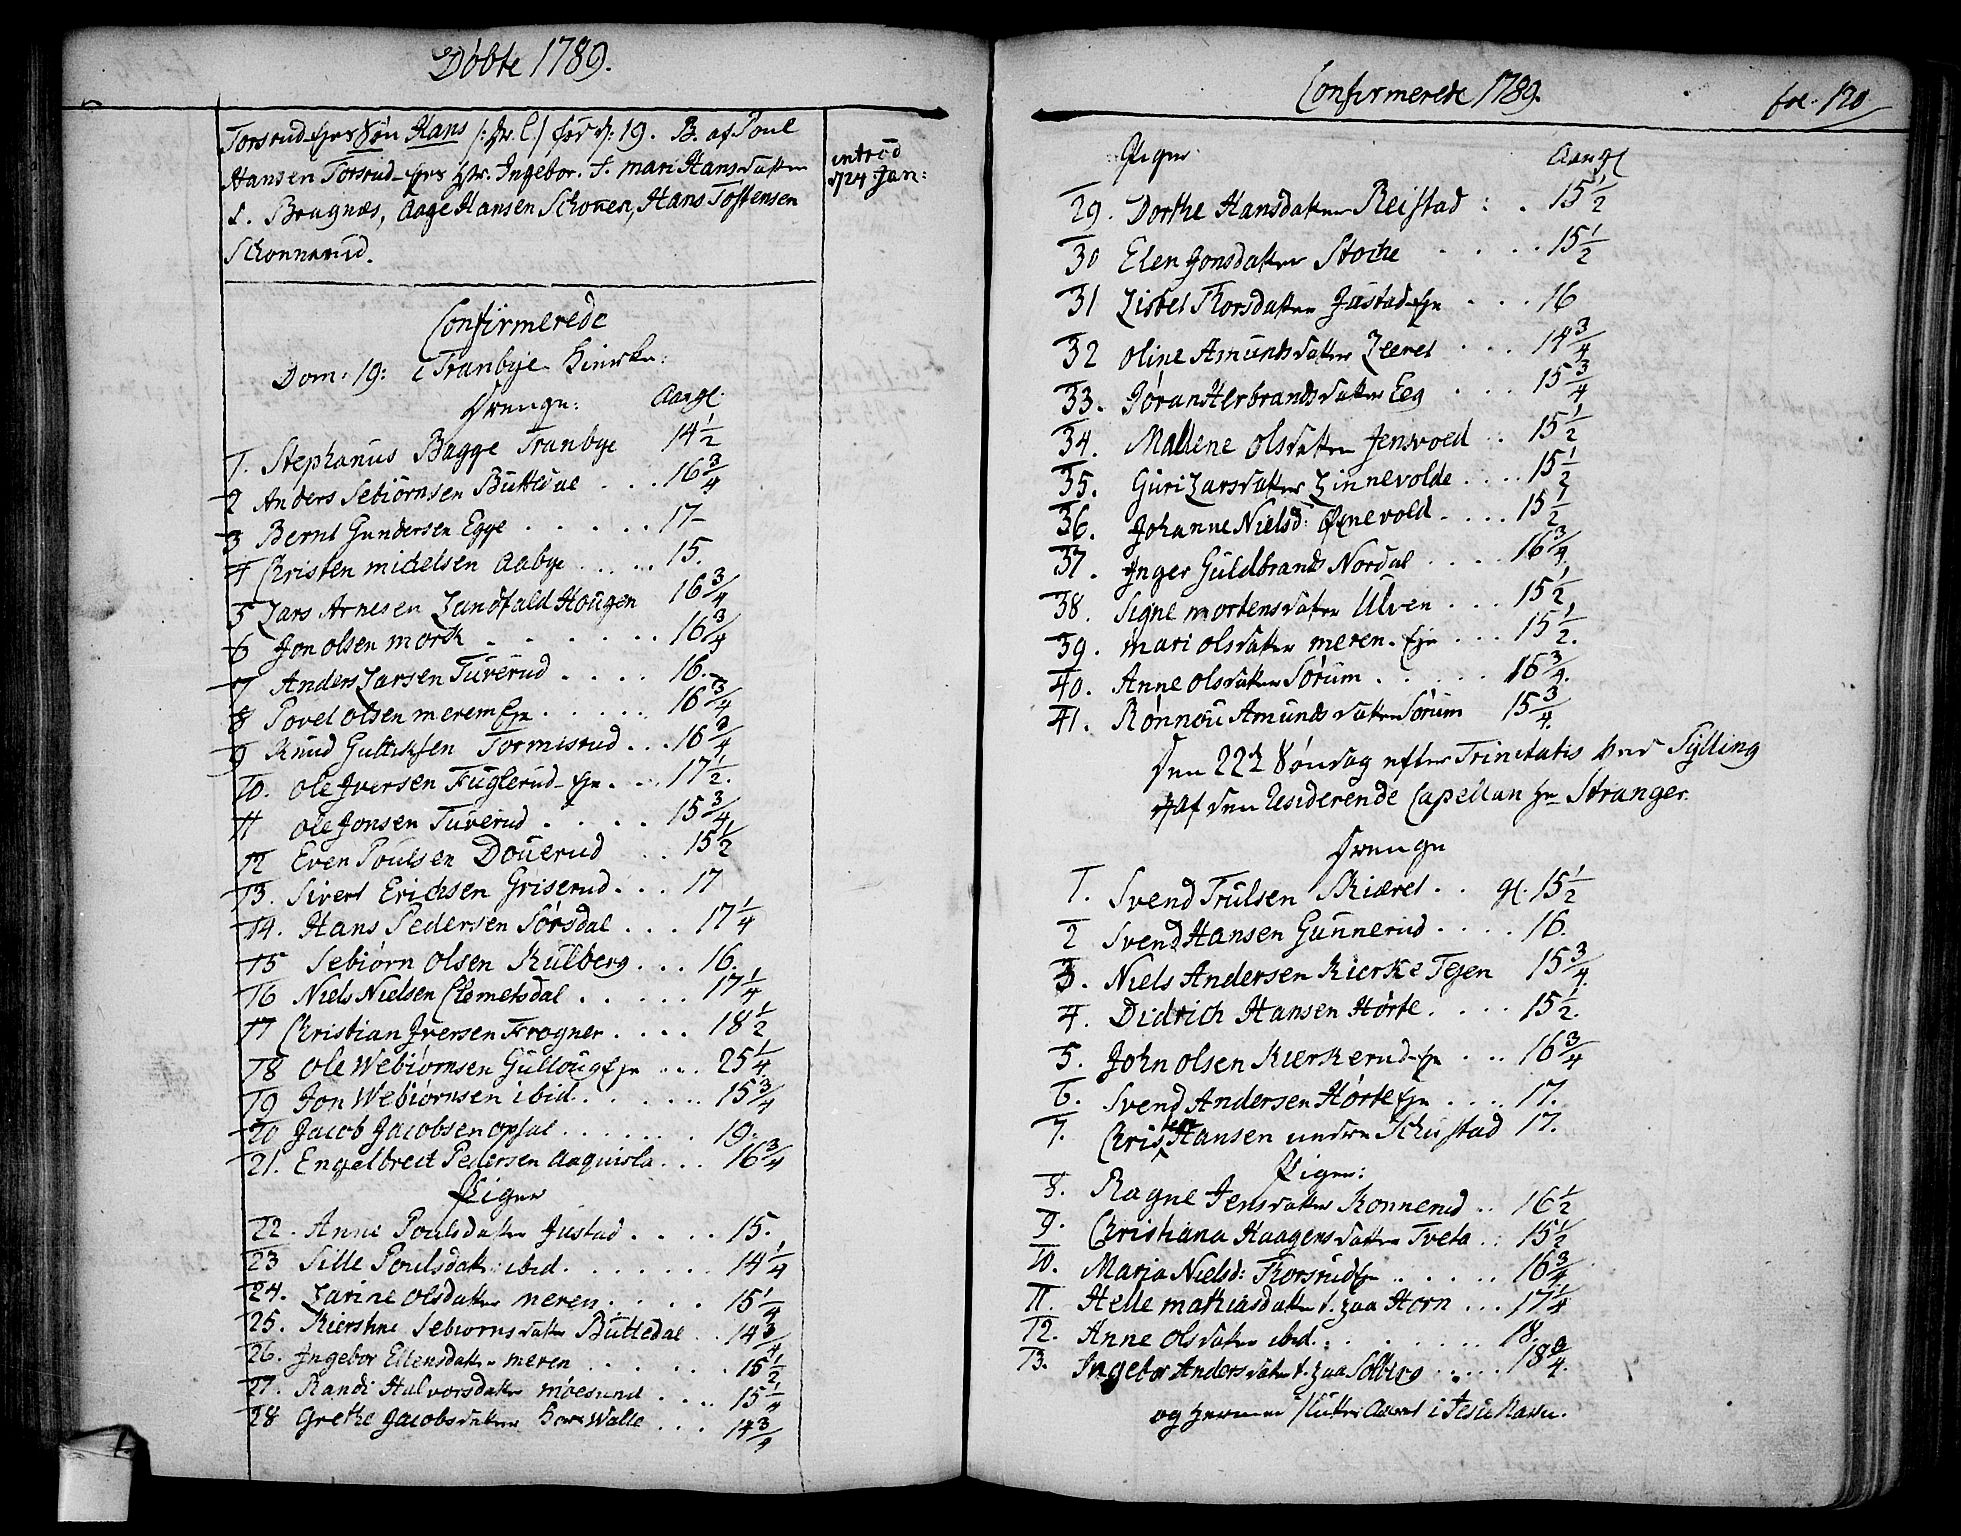 Döbte 1789.
Torsrud-ejes Søn Hans /: hr. C/ fød d: 19. B. af Poul
Hansen Torsrud-ejes hstr. Ingebor. F. mari Hansdatter
S. Bragnæs, Aage Hansen Schouen, Hans Tostensen
Schonnerud.
introd
d 24 Jan:
Confirmerede
Dom. 19: i Tranbye Kirke:
Drenge: Aargl.
1. Stephanus Bagge Tranbye 14 1/2
2 Anders Sebiörnsen Buttedal . . . 16 3/4
3 Bernt Gundersen Egge . . . . . 17
4 Christen michelsen Aabye . . . . . 15.
5 Lars Arnesen Landfald Hougen 16 3/4
6 Jon olsen morch . . . . . . 16 3/4
7 Anders Larsen Tuverud . . . . 16.
8 Povel olsen meren Eje . . . . . 16 3/4
9 Knud Gulliksen Tormisrud . . . 16 3/4
10. ole Iversen Fuglerud-Eje. . . . 17 1/2.
11 ole Jonsen Tuverud . . . . 15 3/4
12 Even Poulsen Douerud . . 15 1/2
13. Sivert Erichsen Griserud. . . 17
14. Hans Pedersen Sörsdal . . . 17 1/4
15 Sebiörn olsen Kulberg . . . 16.
16 Niels Nielsen Clemetsdal . . . . . 17 1/4
17 Christian Iversen Frogner . . . . 18 1/2
18 ole Webiörnsen Gulloug Eje . . . 25 1/4
19 Jon Webiörnsen ibid. . . . . . . 15 3/4
20 Jacob Jacobsen opsal . . . . . . . 19.
21. Engelbrect Pedersen Aaquisla . . . 16 3/4
Piger
22. Anne Poulsdatter Justad . . . . 15.
23 Sille Poulsdatt: ibid. . . . . . . 14 1/4
24. Larine olsdatter meren . . . . 15 1/4
25. Kierstine Sebiornsdatter Buttedal . . 14 3/4
26. Ingebor Ellensdatter meren . . . . . . 15 1/2
27. Randi Halvorsdatter möesund . . . . 15 1/4
28 Grethe Jacobsdatter Hors Walle . . . 14 3/4
Confirmerede 1789.
fol. 120
Piger. Aargl
29. Dorthe Hansdatter Reistad : . 15 1/2
30 Elen Jonsdatter Stoche . . . . 15 1/2
31 Lisbet Thorsdatter Justad-Eje . . . 16
32 oline Amundsdatter Leeret . . . 14 3/4
33. Jöran Herbrandsdatter Eeg . . . 15 3/4
34. Mallene olsdatter Jensvoed . . 15 1/2
35. Guri Larsdatter Linnevolde . . . . 15 1/2
36. Johanne Nielsd: Øfnevold . . . . 15 1/2
37. Inger Guldbrands Nordal . . . . 16 3/4.
38. Signe mortensdatter Ulven . . . 15 1/2
39. mari olsdatter meren-Eje . . . 15 1/2.
40. Anne olsdatter Sörum . . . . . . 16 3/4.
41. Rönnou Amundsdatter Sörum 15 3/4.
Den 22d Söndag efter Trinitatis ved Sylling
af den Residerende Capellan hr Stranger.
Drenge
1. Svend Trulsen Skiæret . . gl. 15 1/2
2 Svend Hansen Gunnerud . . . . 16.
3. Niels Andersen Kierke Tejen 15 3/4.
4. Didrich Hansen Hörte . . . . 15 1/2.
5. John olsen Kierkerud-Eje . . . 16 3/4
6. Svend Andersen Hörte Eje . . . . 17.
7. Christen Hansen undern Schustad 17.
Piger:
8. Ragne Jensdatter Ronnerud . . 16 1/2
9. Christiana Haagensdatter Tveta . . 15 1/2
10. Maria Nielsd: Thorsrud Eje . . . . . . 16 3/4.
11. Helle mathiasdatter t. paa Horn . . . 17 1/4
12. Anne olsdatter ibid. . . . . . . . 18.
13. Ingebor Andersdatter t. paa Solberg . . . . . 18 3/4.
og hermed slutter Aaret i Jesu Navn.